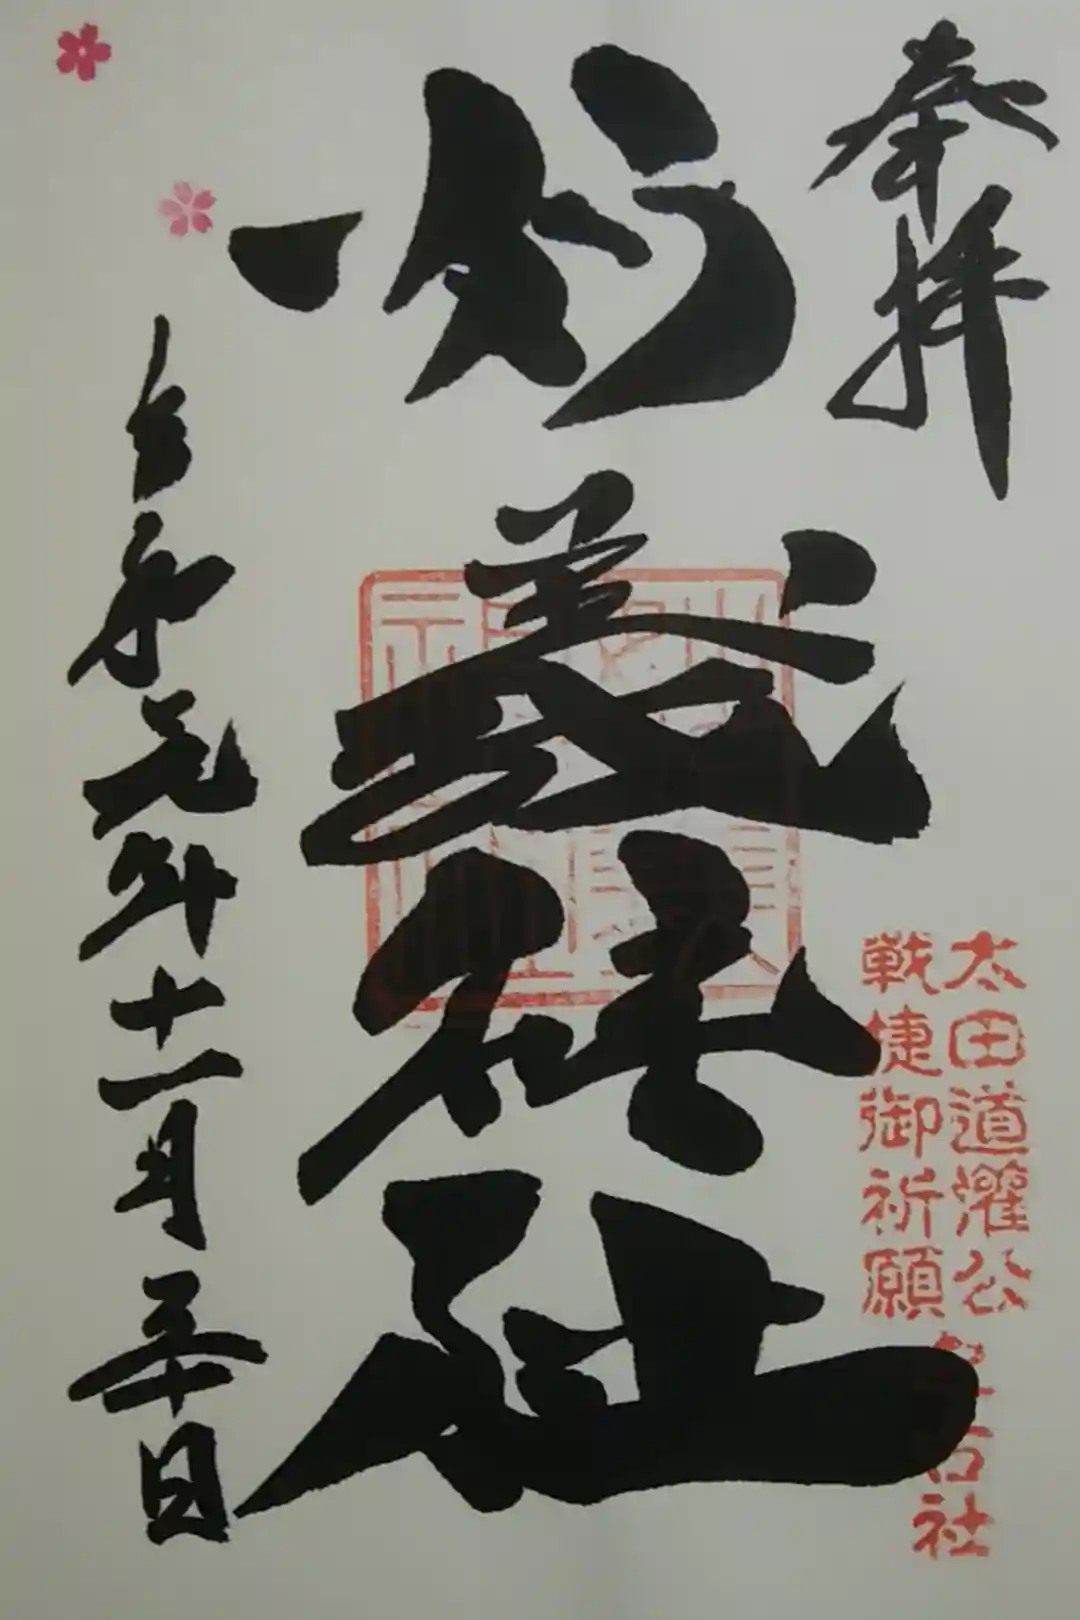 奉拝
妙義神社
令和元年十一月三十日
太田道灌公
戦捷御祈願
社